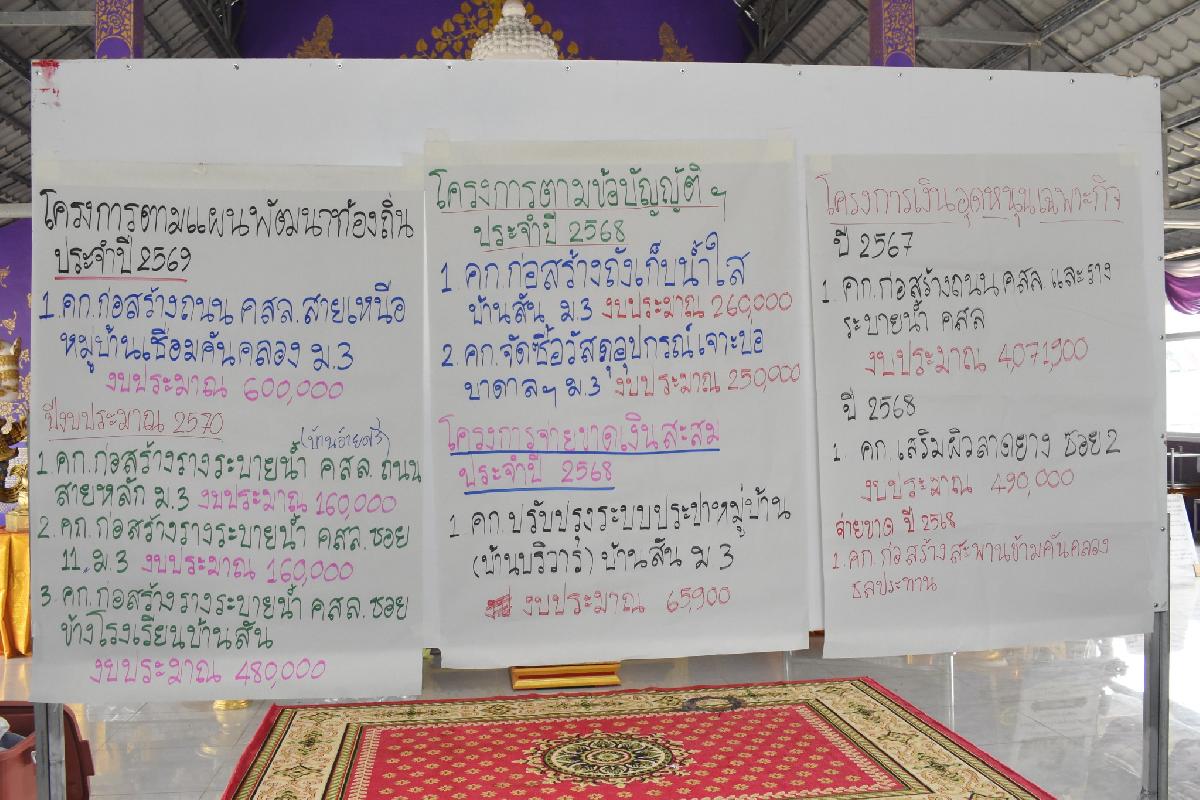 โครงการตามแผนพัฒนาท้องถิ่น
ประจำปี 2569
1. คก.ก่อสร้างถนน คสล. สายเหนือ
หมู่บ้านเชื่อมคันคลอง ม.3
งบประมาณ 600,000
ปีงบประมาณ 2570
1. คก.ก่อสร้างรางระบายน้ำ คสล. ถนน
สายหลัก ม.3 งบประมาณ 160,000
2. คก.ก่อสร้างรางระบายน้ำ คสล. ซอย
11. ม.3 งบประมาณ 160,000
3. คก.ก่อสร้างรางระบายน้ำ คสล. ซอย
ข้างโรงเรียนบ้านสัน
งบประมาณ 480,000
โครงการตามข้อบัญญัติ ฯ
ประจำปี 2568
1 คก.ก่อสร้างถังเก็บน้ำใส
บ้านสัน ม.3 งบประมาณ 260,000
2. คก.จัดซื้อวัสดุอุปกรณ์เจาะบ่อ
บาดาลฯ ม.3 งบประมาณ 250,000
โครงการจ่ายขาดเงินสะสม
ประจำปี 2568
1 คก.ปรับปรุงระบบประปาหมู่บ้าน
(บ้านบริวาร) บ้านสัน ม 3
งบประมาณ 65,900
โครงการเงินอุดหนุนเฉพาะกิจ
ปี 2567
1. คก.ก่อสร้างถนน คสล และราง
ระบายน้ำ คสล
งบประมาณ 4,071,900
ปี 2568
1. คก.เสริมผิวลาดยาง ซอย 2
งบประมาณ 490,000
จ่ายขาด ปี 2568
1. คก.ก่อสร้างสะพานข้ามคันคลอง
ชลประทาน